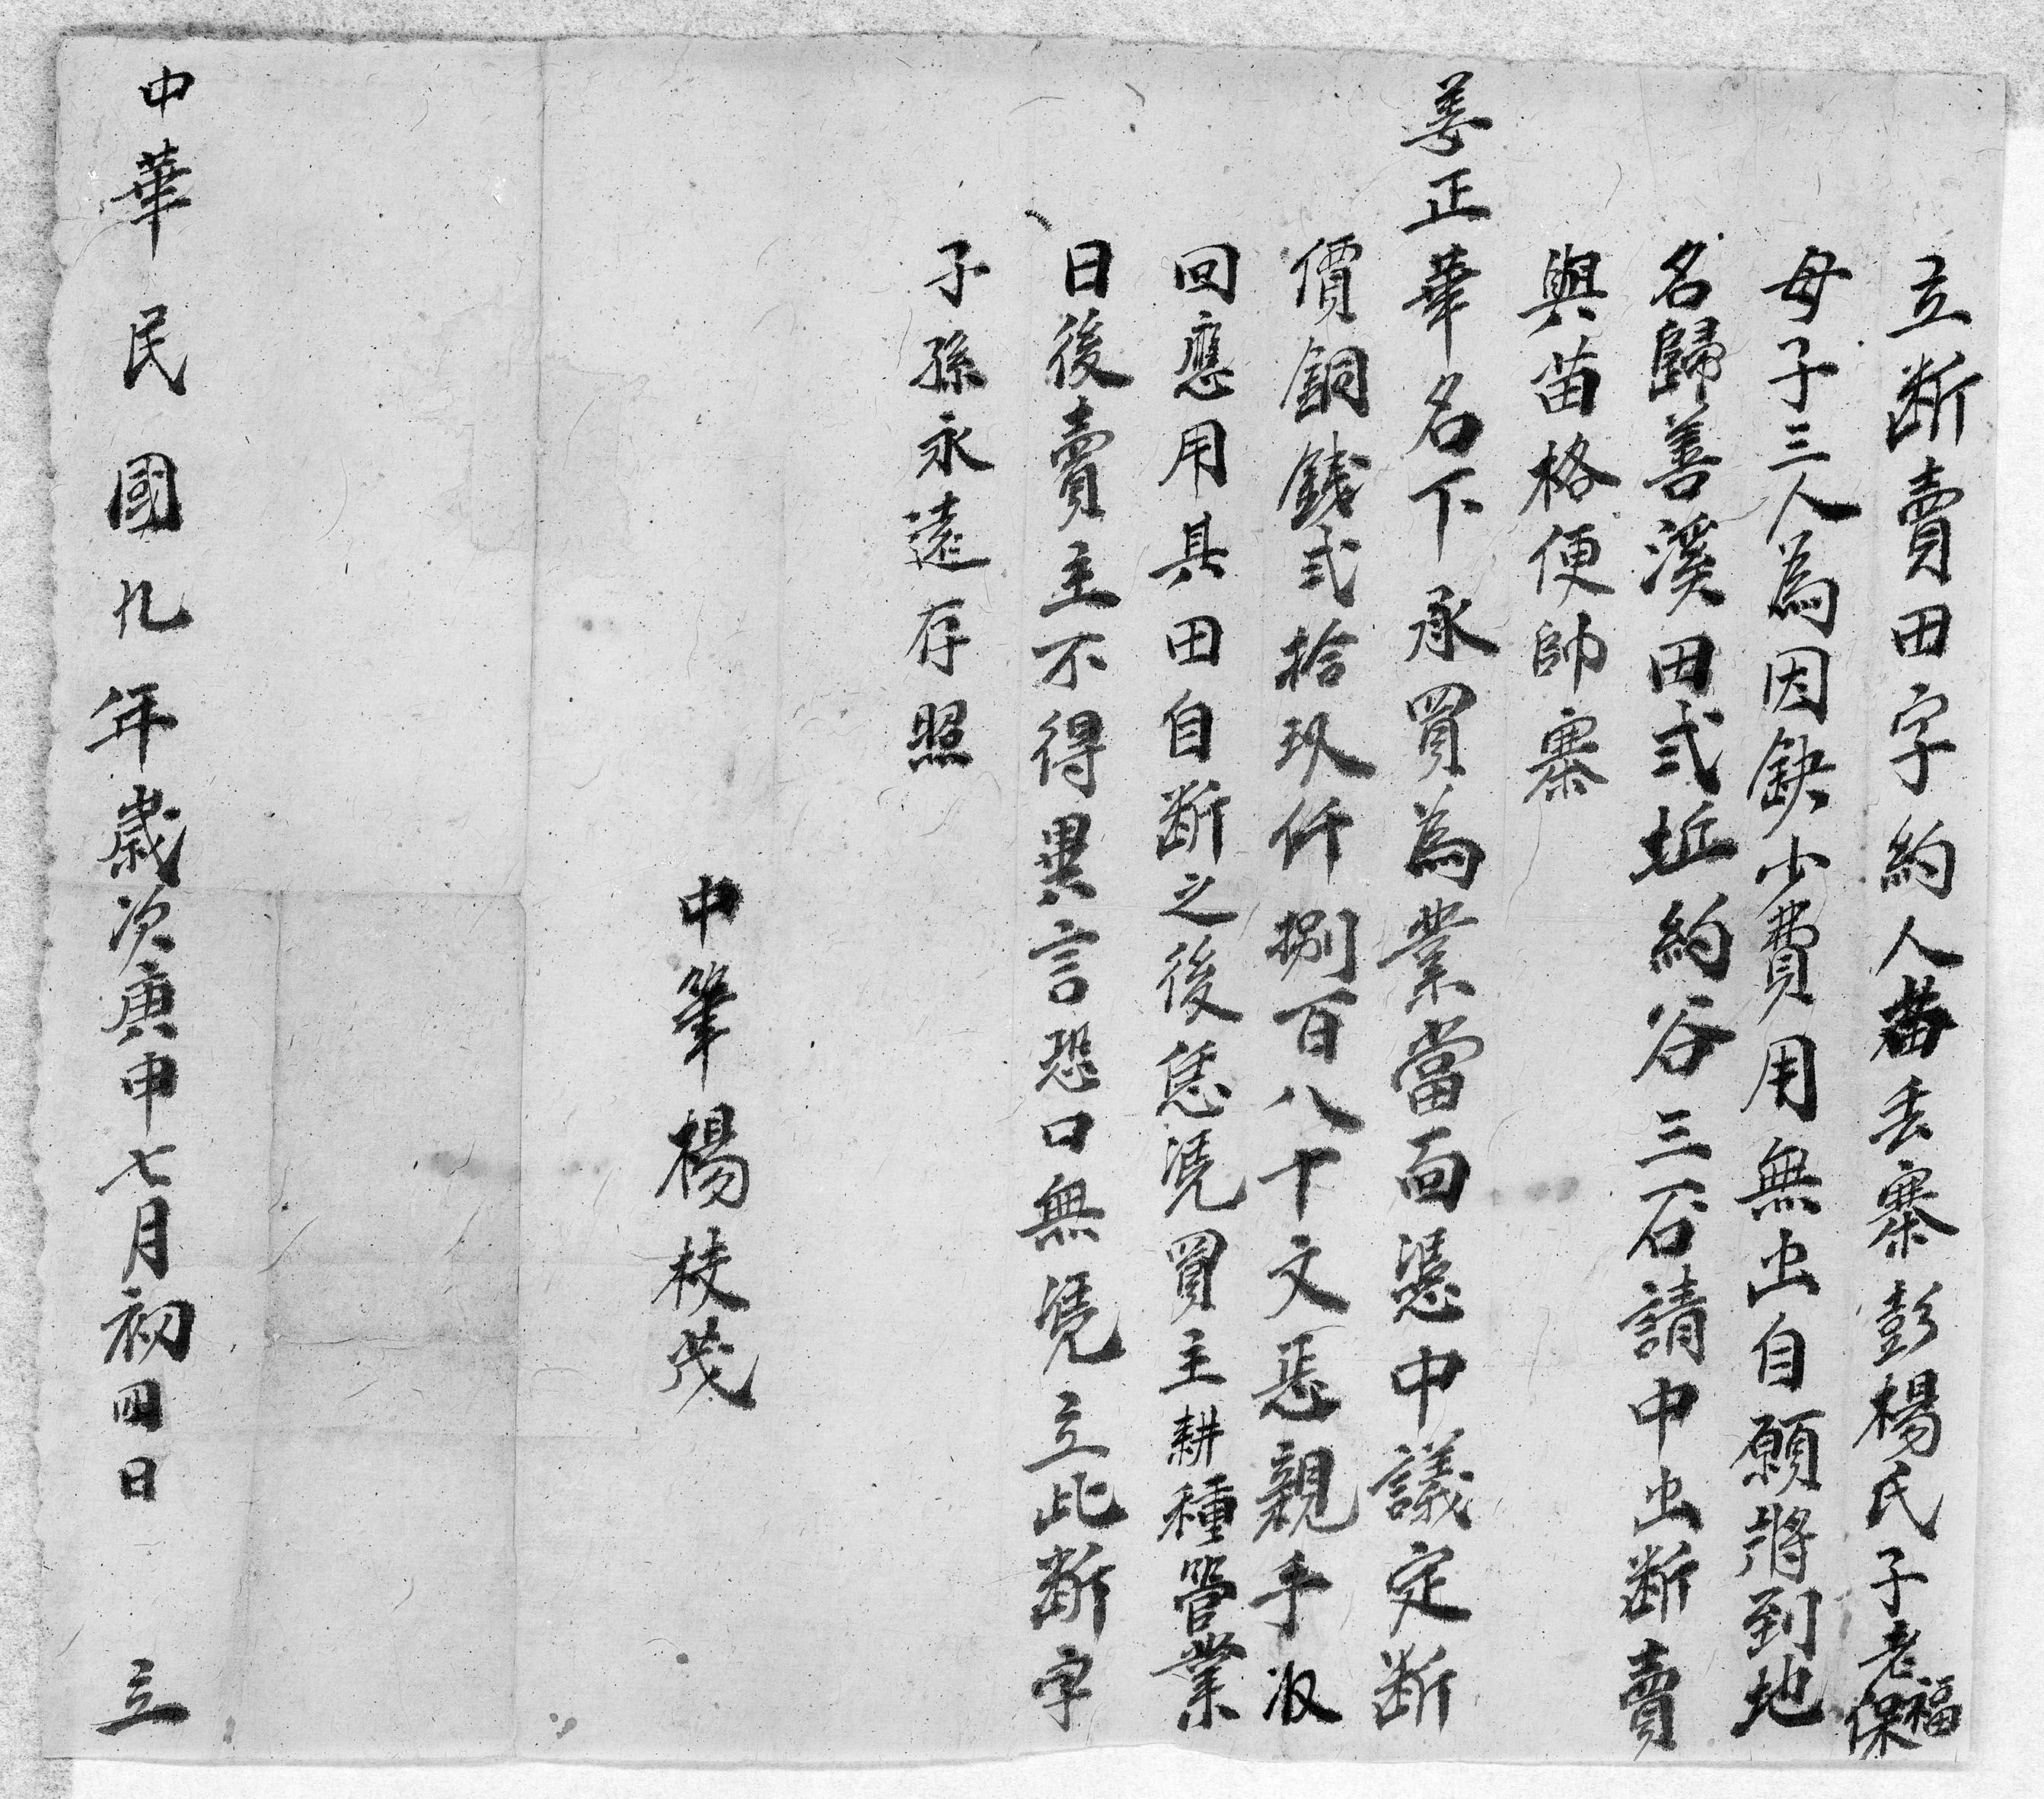 立断賣田字約人苗丢寨彭楊氏子老福保
母子三人為因缺少費用無出自願將到地
名歸善溪田弍坵約谷三石請中出断賣
與苗格便帥寨
姜正華名下承買為業當面憑中議定断
價銅錢弍拾玖仟捌百八十文恁親手収
回應用其田自断之後恁凴買主耕種管業
日後賣主不得異言恐口無凴立此断字
子孫永遠存照
中筆楊枝茂
中華民國九年歲次庚申七月初四日 立